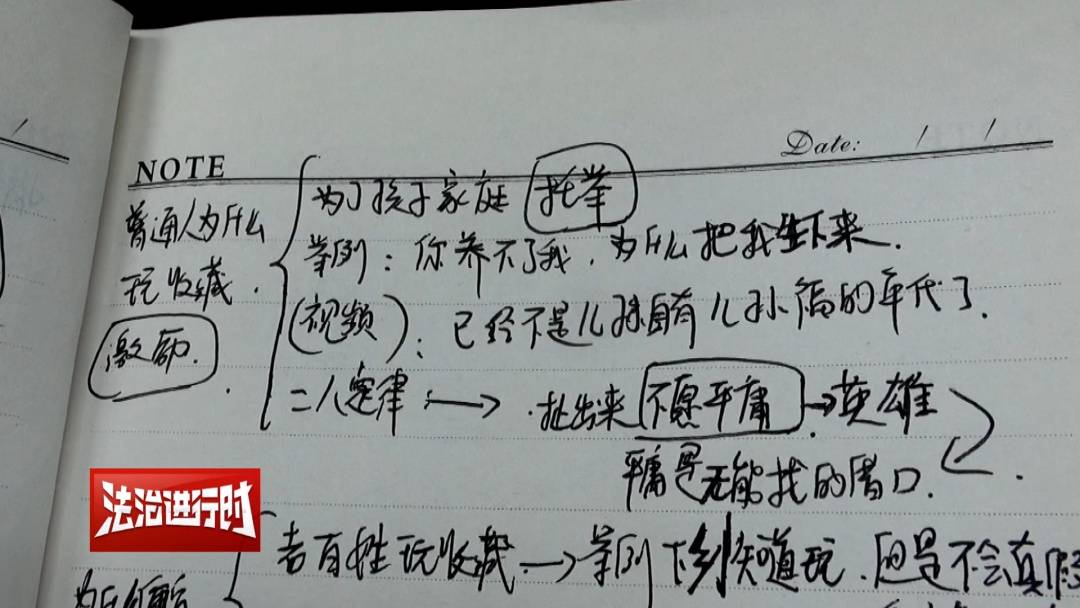 NOTE
Date: / /
普通人为什么
玩收藏.
激励.
为了孩子家庭 托举
举例：你养不了我，为什么把我生下来.
(视频)：已经不是儿孙自有儿孙福的年代了.
二八定律 → 扯出来 不愿平庸 → 英雄
平庸是无能找的借口.
法治进行时
老百姓玩收藏 → 举例 下乡 知道玩，但是不会真假